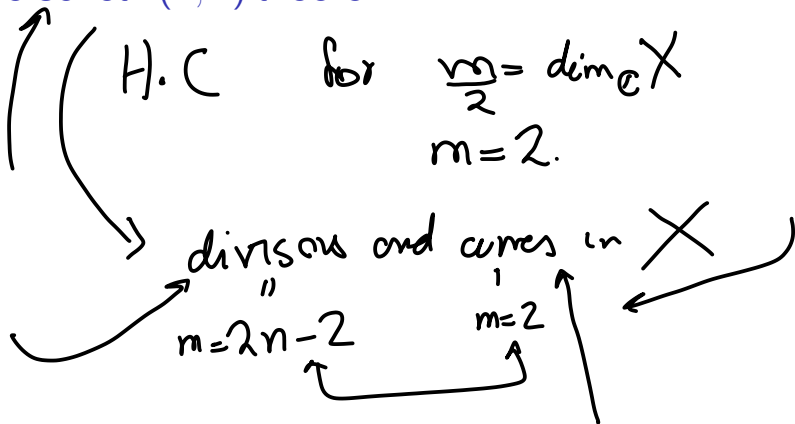 H.C for m/2 = dim_ℂ X
m = 2.
divisors and curves in X
m = 2n - 2 m = 2